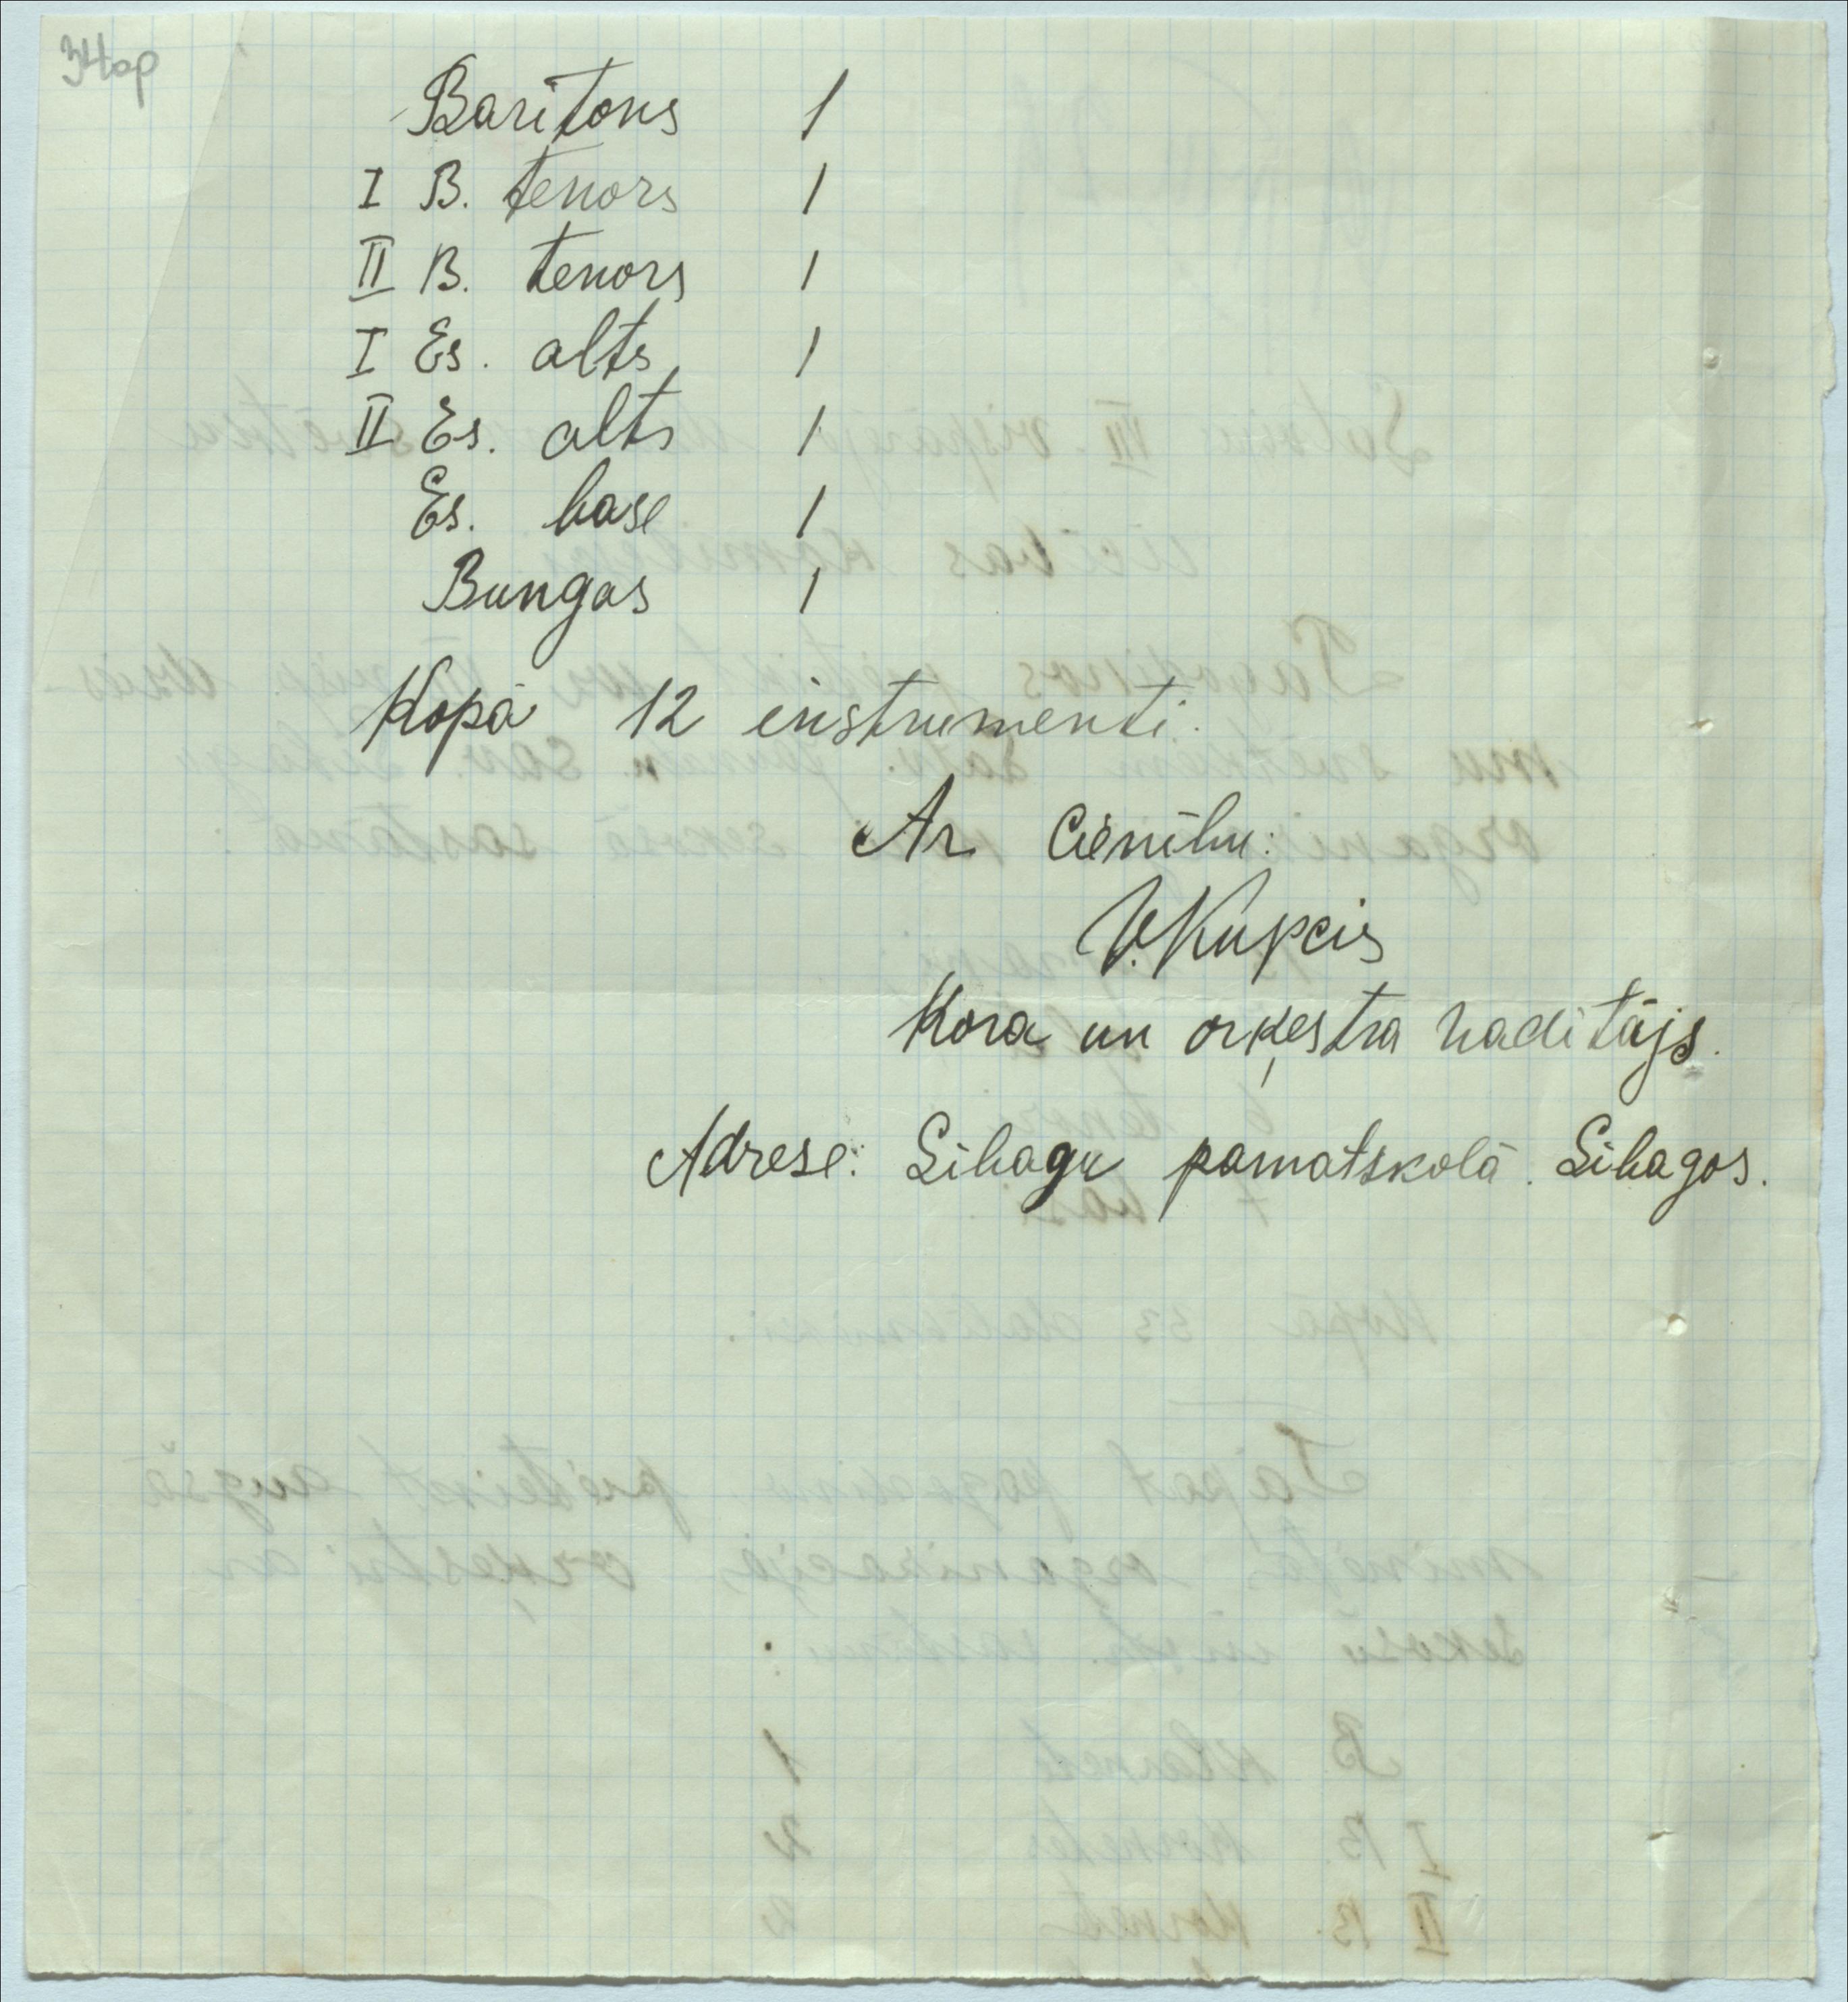 34op
Baritons 1
I B. tenors 1
II B. tenors 1
I Es. alts 1
II Es. alts 1
Es. base 1
Bungas 1
Kopā 12 instrumenti.
Ar cienību:
V. Kupcis
Kora un orķestra vadītājs.
Adrese: Sikagu pamatskolā. Sikagos.